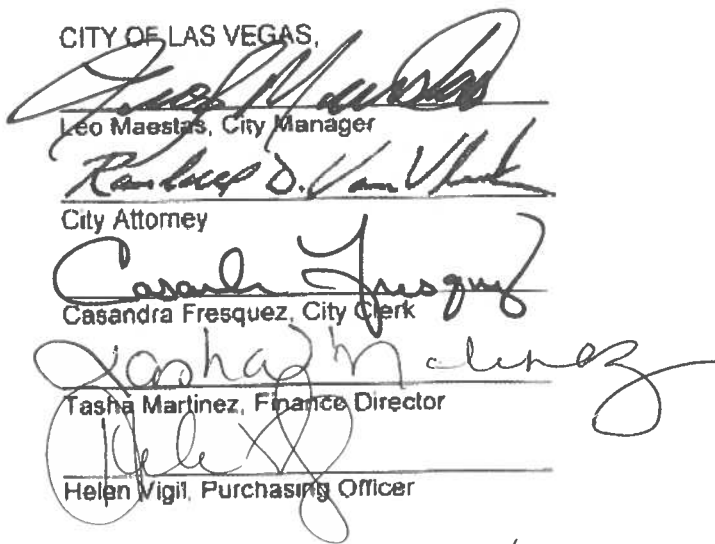 CITY OF LAS VEGAS,
Leo Maestas, City Manager
Randall D. Van Vleck
City Attorney
Casandra Fresquez
Casandra Fresquez, City Clerk
Tasha Martinez
Tasha Martinez, Finance Director
Helen Vigil, Purchasing Officer